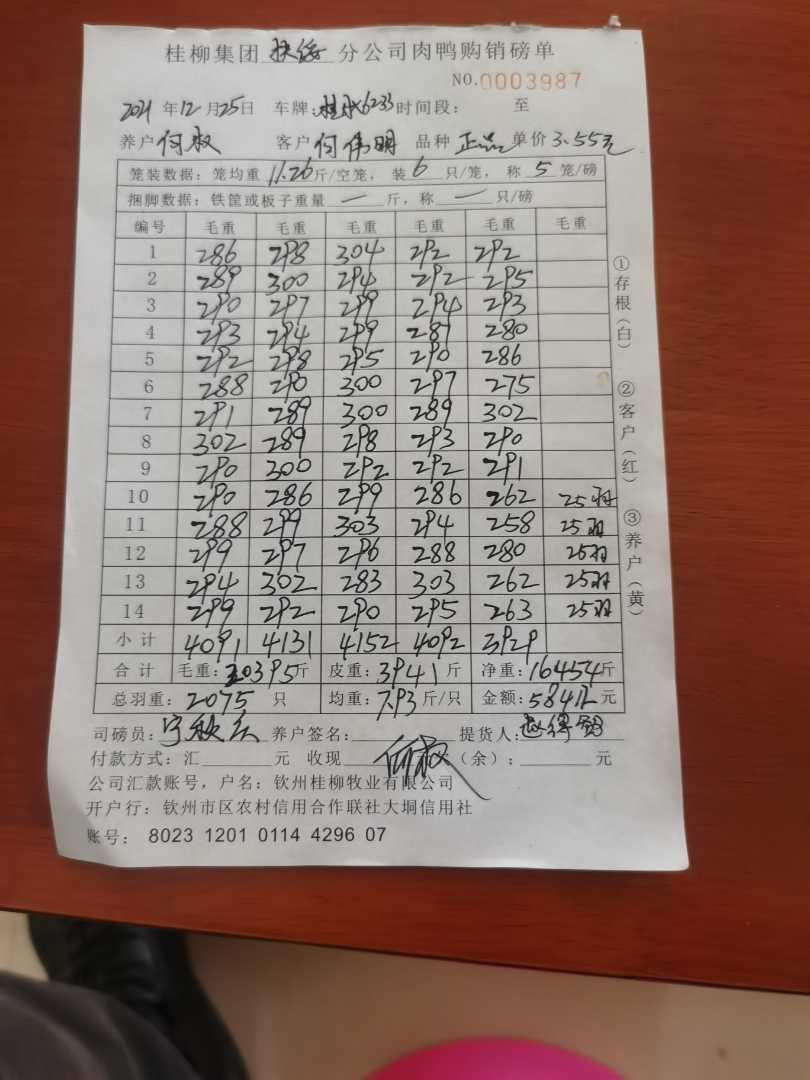 桂柳集团 扶绥 分公司肉鸭购销磅单
NO.0003987
2021 年 12 月 25 日 车牌: 6233 时间段: 至
养户 何权 客户 何伟明 品种 正品 单价 3.55元
笼装数据: 笼均重 11.26 斤/空笼, 装 6 只/笼, 称 5 笼/磅
捆脚数据: 铁筐或板子重量 — 斤, 称 — 只/磅
编号 毛重 毛重 毛重 毛重 毛重 毛重
1 286 298 304 292 292
2 289 300 294 292 295
3 290 297 299 294 293
4 293 294 299 287 280
5 292 298 295 290 286
6 288 290 300 297 275
7 291 289 300 289 302
8 302 289 298 293 290
9 290 300 292 292 291
10 290 286 299 286 262 25羽
11 288 299 303 294 258 25羽
12 299 297 296 288 280 25羽
13 294 302 283 303 262 25羽
14 299 292 290 295 263 25羽
小计 4091 4131 4152 4092 3929
合计 毛重: 20395 斤 皮重: 3941 斤 净重: 16454 斤
总羽重: 2075 只 均重: 7.93 斤/只 金额: 58412 元
司磅员: 养户签名: 提货人:
付款方式: 汇 元 收现 何权 (余): 元
公司汇款账号, 户名: 钦州桂柳牧业有限公司
开户行: 钦州市区农村信用合作联社大垌信用社
账号: 8023 1201 0114 4296 07
①存根(白) ②客户(红) ③养户(黄)